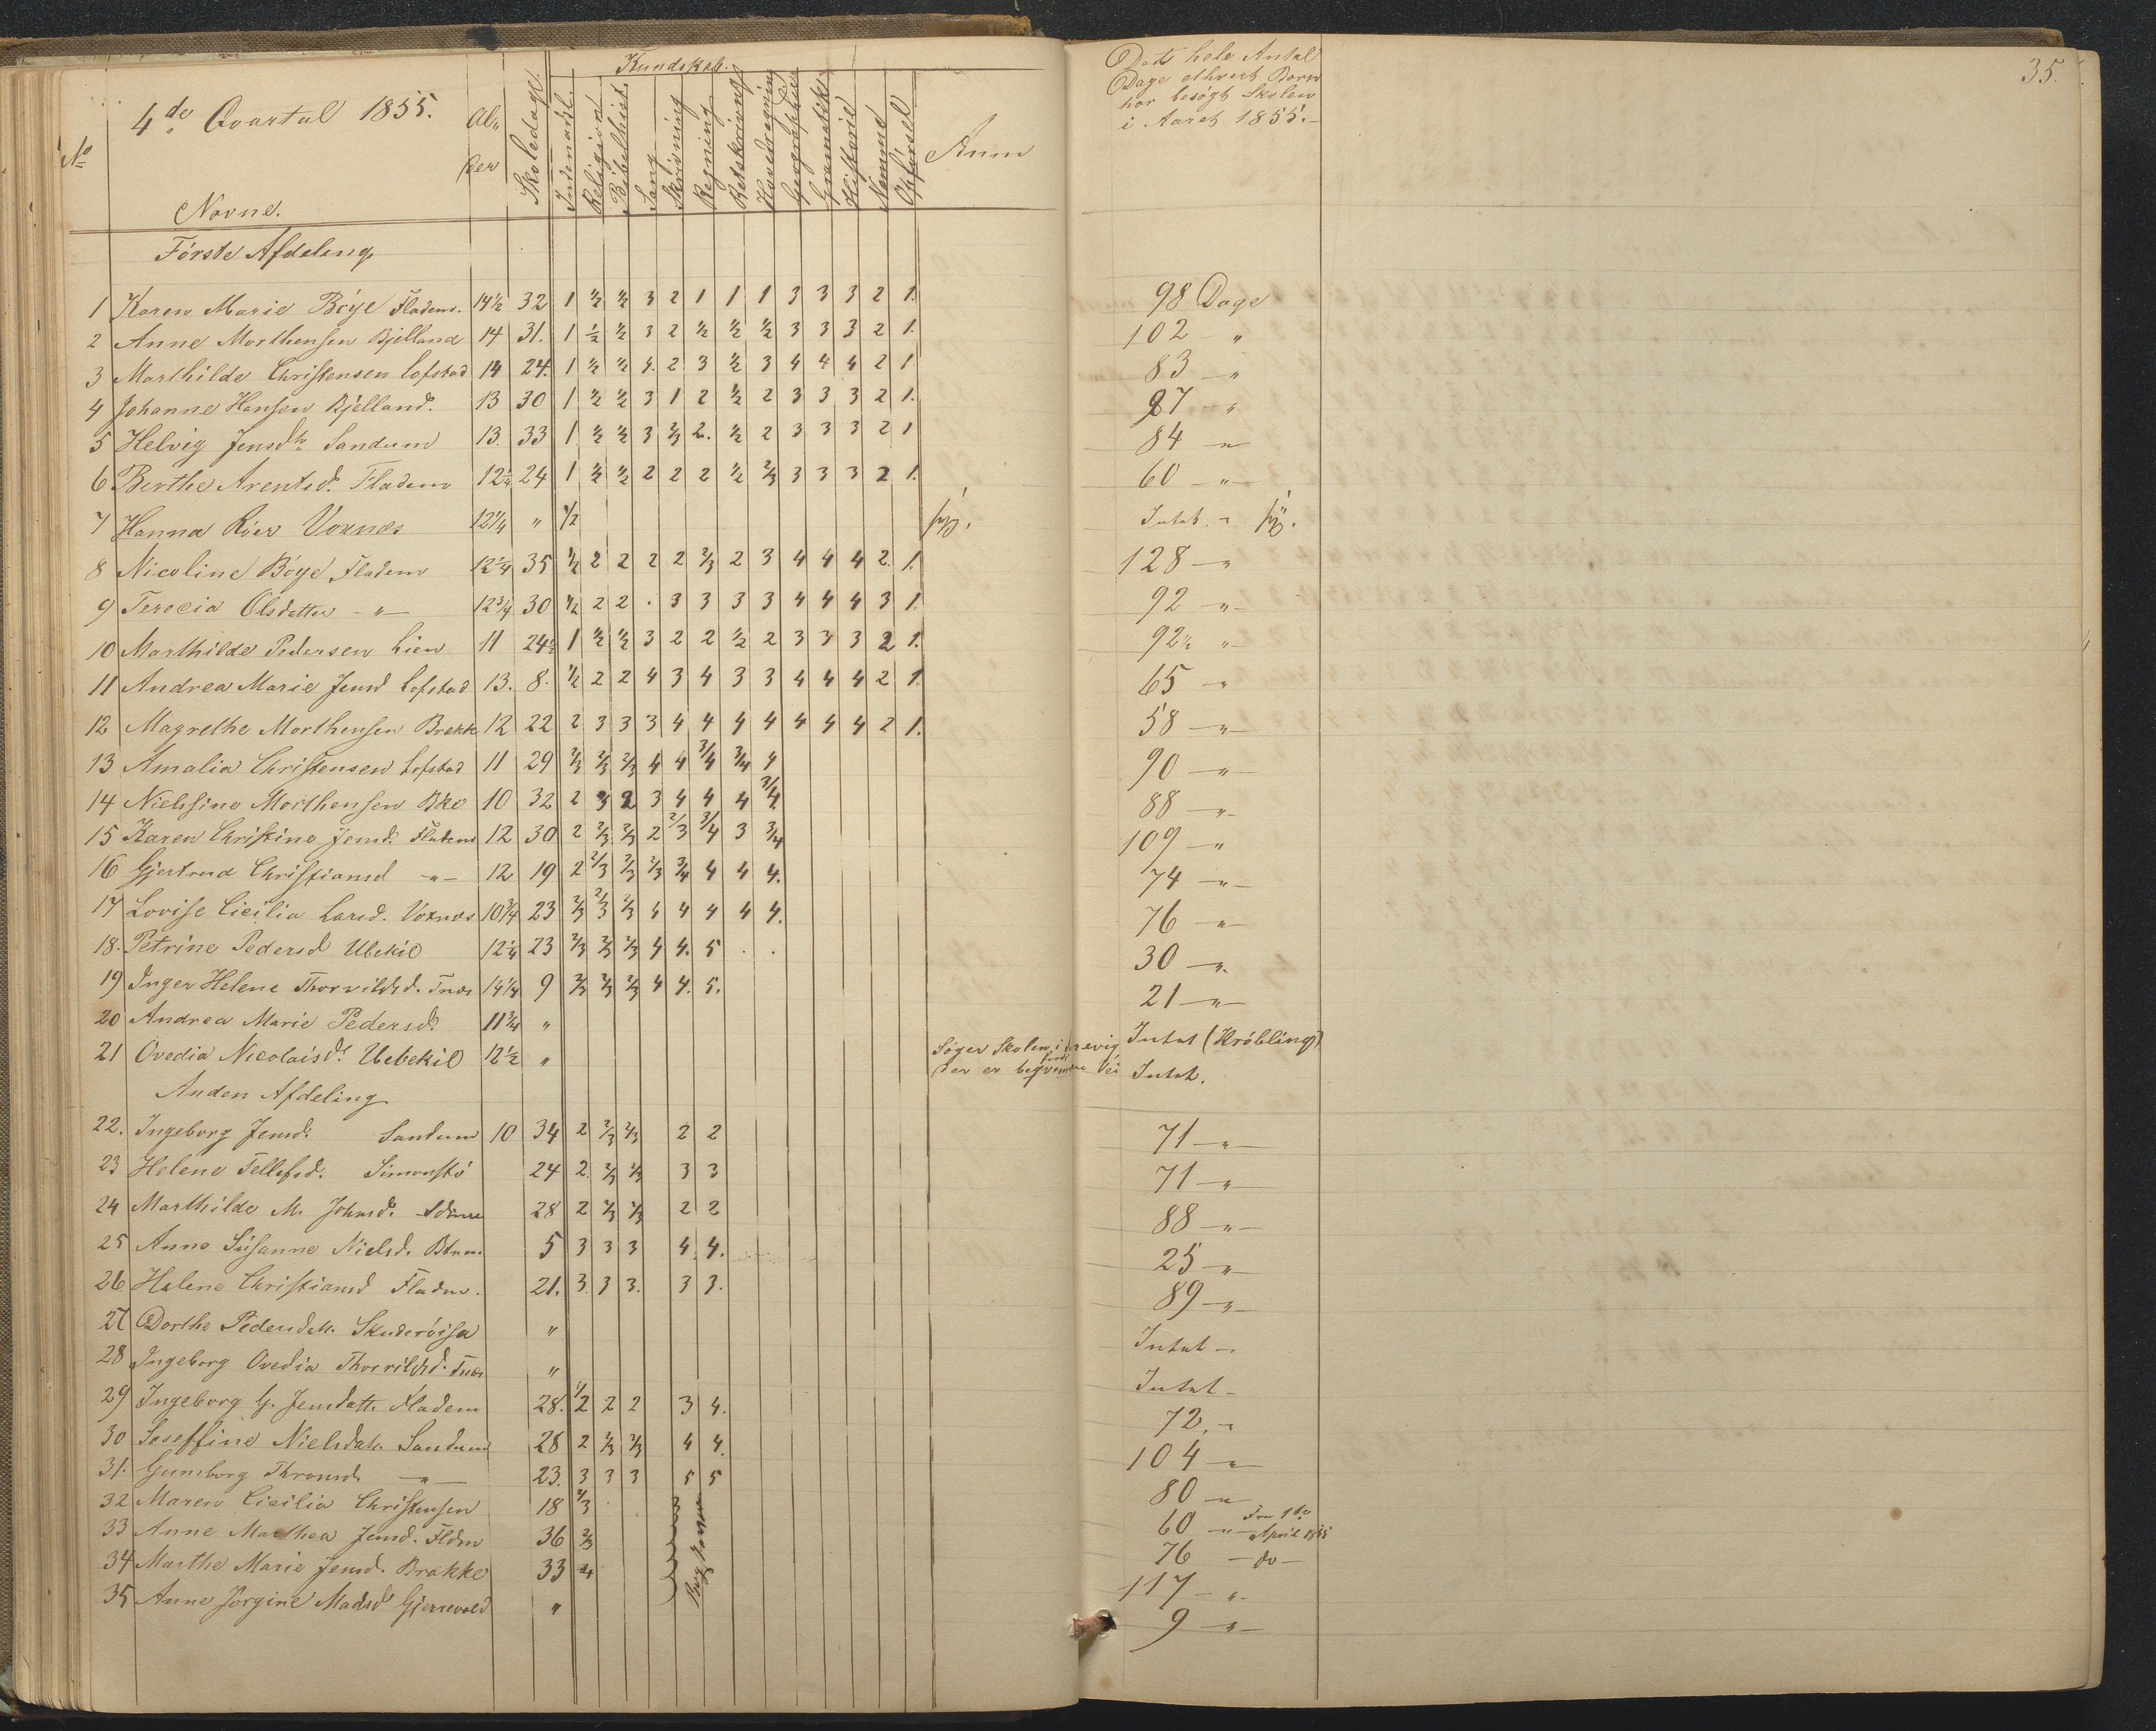 35.
4de Qvartal 1855.
No
Navne.
Al-
der
Skoledage
Kundskab.
Indenadl.
Religion
Bibelhist.
Sang
Skrivning
Regning
Retskrivning
Hovedregning
Geographie
Gramatik
Historie
Nemme
Opførsel
Anm
Det hele Antal
Dage ethvert Barn
har besögt Skolen
i Aaret 1855.
Förste Afdeling
1 Karen Marie Böye Fladem. 14½ 32 1 ½ ½ 3 2 1 1 1 3 3 3 2 1. 98 Dage
2 Anne Morthensen Bjelland 14 31. 1 ½ ½ 3 2 ½ ½ ½ 3 3 3 2 1. 102 "
3 Marthilde Christensen Lofstad 14 24. 1 ½ ½ 4. 2 3 ½ 3 4 4 4 2 1. 83 - "
4 Johanne Hansen Bjelland. 13 30 1 ½ ½ 3 1 2 ½ 2 3 3 3 2 1. 87 "
5 Helvig Jensdtr Sandum 13. 33 1 ½ ½ 3 2/3 2. ½ 2 3 3 3 2 1 84 - "
6 Berthe Arentsd. Fladem 12¼ 24 1 ½ ½ 2 2 2 ½ 2/3 3 3 3 2 1. 60 - " -
7 Hanna Röer Voxnæs 12¼ " ½ syg. Intet. - syg.
8 Nicoline Böye Fladem 12¼ 35 ½ 2 2 2 2 2/3 2 3 4 4 4 2. 1. 128 - "
9 Terecia Olsdatter - " - 12¾ 30 ½ 2 2 . 3 3 3 3 4 4 4 3 1. 92 - " -
10 Marthilde Pedersen Lien 11 24½ 1 ½ ½ 3 2 2 ½ 2 3 3 3 2 1. 92½ "
11 Andrea Marie Jensd Lofstad 13. 8. ½ 2 2 4 3 4 3 3 4 4 4 2 1. 65 - "
12 Magrethe Morthensen Brekk 12 22 2 3 3 3 4 4 4 4 4 4 4 2 1. 58 - " -
13 Amalia Christensen Lofstad 11 29 2/3 2/3 2/3 4 4 3/4 3/4 4 90 - " -
14 Nielsine Morthensen 10 32 2 3 2 3 4 4 4 3/4. 88 - " -
15 Karen Christine Jensd. Fladem 12 30 2 2/3 2/3 2 2/3 3/4 3 3/4 109 - "
16 Gjertrud Christiansd - " - 12 19 2 2/3 2/3 2/3 3/4 4 4 4. 74 - " -
17 Lovise Cicilia Larsd. Voxnæs 10¾ 23 2/3 2/3 2/3 4 4 4 4 4. 76 - "
18. Petrine Pedersd Ubekil 12¼ 23 2/3 2/3 2/3 4 4. 5 . . 30 - ".
19 Inger Helene Thorvildsd. 14¼ 9 2/3 2/3 2/3 4 4. 5. 21 - " -
20 Andrea Marie Pedersd. 11¾ " Intet (Kröbling)
21 Ovedia Nicolaisdt Uebekil 12½ " Söger Skolen i
der er
fordi
begvemere Vei Intet.
Anden Afdeling
22. Ingeborg Jensd. Sandum 10 34 2 2/3 2/3 2 2 71 - " -
23 Helene Tellefsd. Simonstö 24 2. 2/3 2/3 3 3 71 - " -
24 Marthilde M. Johnsd. 28 2 2/3 2/3 2 2 88 - " -
25 Anne Susanne Nielsd. 5 3 3 3 4. 4. 25 - "
26 Helene Christiansd Fladm. 21. 3. 3 3. 3 3. 89 - " -
27 Dorthe Pedersdatt. Skuderöisa " Intet -
28 Ingeborg Ovedia Thorvildsd. " Intet -
29 Ingeborg G. Jensdatt. Fladem 28. ½ 2 2 3 4. 72. - "
30 Joseffine Nielsdatt. Sandum 28 2 2/3 2/3 4 4. 104 - " -
31. Gunborg Thronsd. - " - 23. 3 3 3 5 5 80 - "
32 Maren Cicilia Christensen 18 2/3 60 - " - Fra 1de
April 1855
33 Anne Marthea Jensd. Fldm 36 2/3 76 - do -
34 Marthe Marie Jensd. Brække 33 117 - " -
35 Anne Jörgine Madsd Gjerrevold " 9 - " -